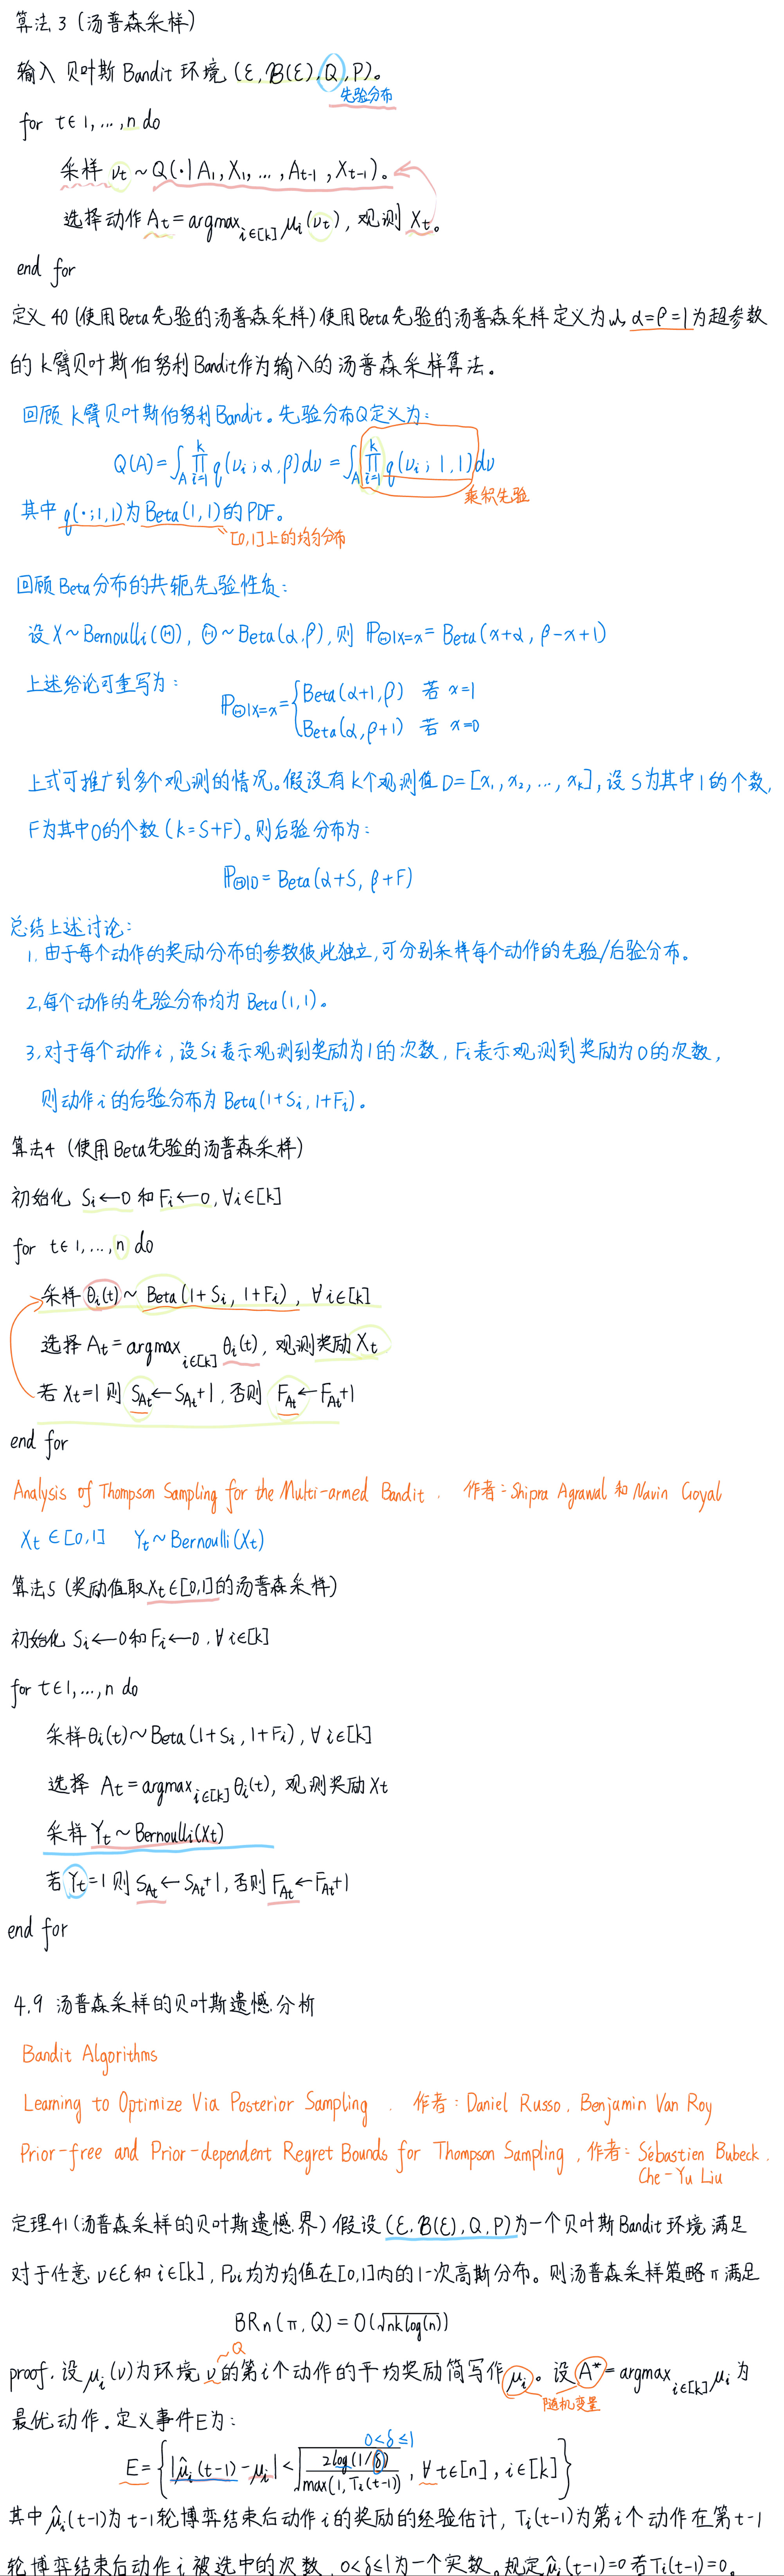 算法3 (汤普森采样)
输入 贝叶斯 Bandit 环境 (ε, B(ε), Q, P)。
先验分布
for t∈1, ..., n do
采样 νt ~ Q(·|A1, X1, ..., At-1, Xt-1)。
选择动作 At = argmax i∈[k] μi(νt), 观测 Xt。
end for
定义 40 (使用Beta先验的汤普森采样) 使用Beta先验的汤普森采样定义为以 α=β=1 为超参数
的 k臂贝叶斯伯努利Bandit作为输入的汤普森采样算法。
回顾 k臂贝叶斯伯努利Bandit。先验分布Q定义为:
Q(A) = ∫A ∏i=1^k q(νi; α, β)dν = ∫A ∏i=1^k q(νi; 1, 1)dν
乘积先验
其中 q(·;1,1)为 Beta(1,1)的PDF。
[0,1]上的均匀分布
回顾Beta分布的共轭先验性质:
设 X~Bernoulli(Θ), Θ~Beta(α,β), 则 ℙΘ|X=x = Beta(x+α, β-x+1)
上述结论可重写为:
ℙΘ|X=x = { Beta(α+1, β) 若 x=1
Beta(α, β+1) 若 x=0
上式可推广到多个观测的情况。假设有k个观测值 D=[x1, x2, ..., xk], 设 S为其中1的个数,
F为其中0的个数 (k=S+F)。则后验分布为:
ℙΘ|D = Beta(α+S, β+F)
总结上述讨论:
1. 由于每个动作的奖励分布的参数彼此独立, 可分别采样每个动作的先验/后验分布。
2. 每个动作的先验分布均为 Beta(1,1)。
3. 对于每个动作i, 设Si表示观测到奖励为1的次数, Fi表示观测到奖励为0的次数,
则动作i的后验分布为 Beta(1+Si, 1+Fi)。
算法4 (使用Beta先验的汤普森采样)
初始化 Si←0 和 Fi←0, ∀i∈[k]
for t∈1, ..., n do
采样 θi(t) ~ Beta(1+Si, 1+Fi), ∀i∈[k]
选择 At = argmax i∈[k] θi(t), 观测奖励 Xt
若 Xt=1 则 SAt←SAt+1, 否则 FAt←FAt+1
end for
Analysis of Thompson Sampling for the Multi-armed Bandit. 作者: Shipra Agrawal 和 Navin Goyal
Xt∈[0,1] Yt~Bernoulli(Xt)
算法5 (奖励值取Xt∈[0,1]的汤普森采样)
初始化 Si←0和Fi←0, ∀i∈[k]
for t∈1, ..., n do
采样θi(t)~Beta(1+Si, 1+Fi), ∀i∈[k]
选择 At = argmax i∈[k] θi(t), 观测奖励Xt
采样 Yt~Bernoulli(Xt)
若 Yt=1 则 SAt←SAt+1, 否则 FAt←FAt+1
end for
4.9 汤普森采样的贝叶斯遗憾分析
Bandit Algorithms
Learning to Optimize Via Posterior Sampling. 作者: Daniel Russo, Benjamin Van Roy
Prior-free and Prior-dependent Regret Bounds for Thompson Sampling, 作者: Sébastien Bubeck,
Che-Yu Liu
定理41 (汤普森采样的贝叶斯遗憾界) 假设 (ε, B(ε), Q, P)为一个贝叶斯Bandit环境 满足
对于任意 ν∈ε和 i∈[k], Pνi均为均值在[0,1]内的1-次高斯分布。则汤普森采样策略π满足
BRn(π, Q) = O(√nklog(n))
~Q
proof. 设 μi(ν)为环境ν的第i个动作的平均奖励简写作 μi。设 A* = argmax i∈[k] μi 为
随机变量
最优动作. 定义事件E为:
0<δ≤1
E = { |μ̂i(t-1) - μi| < √(2log(1/δ) / max(1, Ti(t-1))), ∀t∈[n], i∈[k] }
其中 μ̂i(t-1)为 t-1轮博弈结束后动作i的奖励的经验估计, Ti(t-1)为第i个动作在第t-1
轮博弈结束后动作i被选中的次数, 0<δ≤1为一个实数。规定μ̂i(t-1)=0若Ti(t-1)=0。